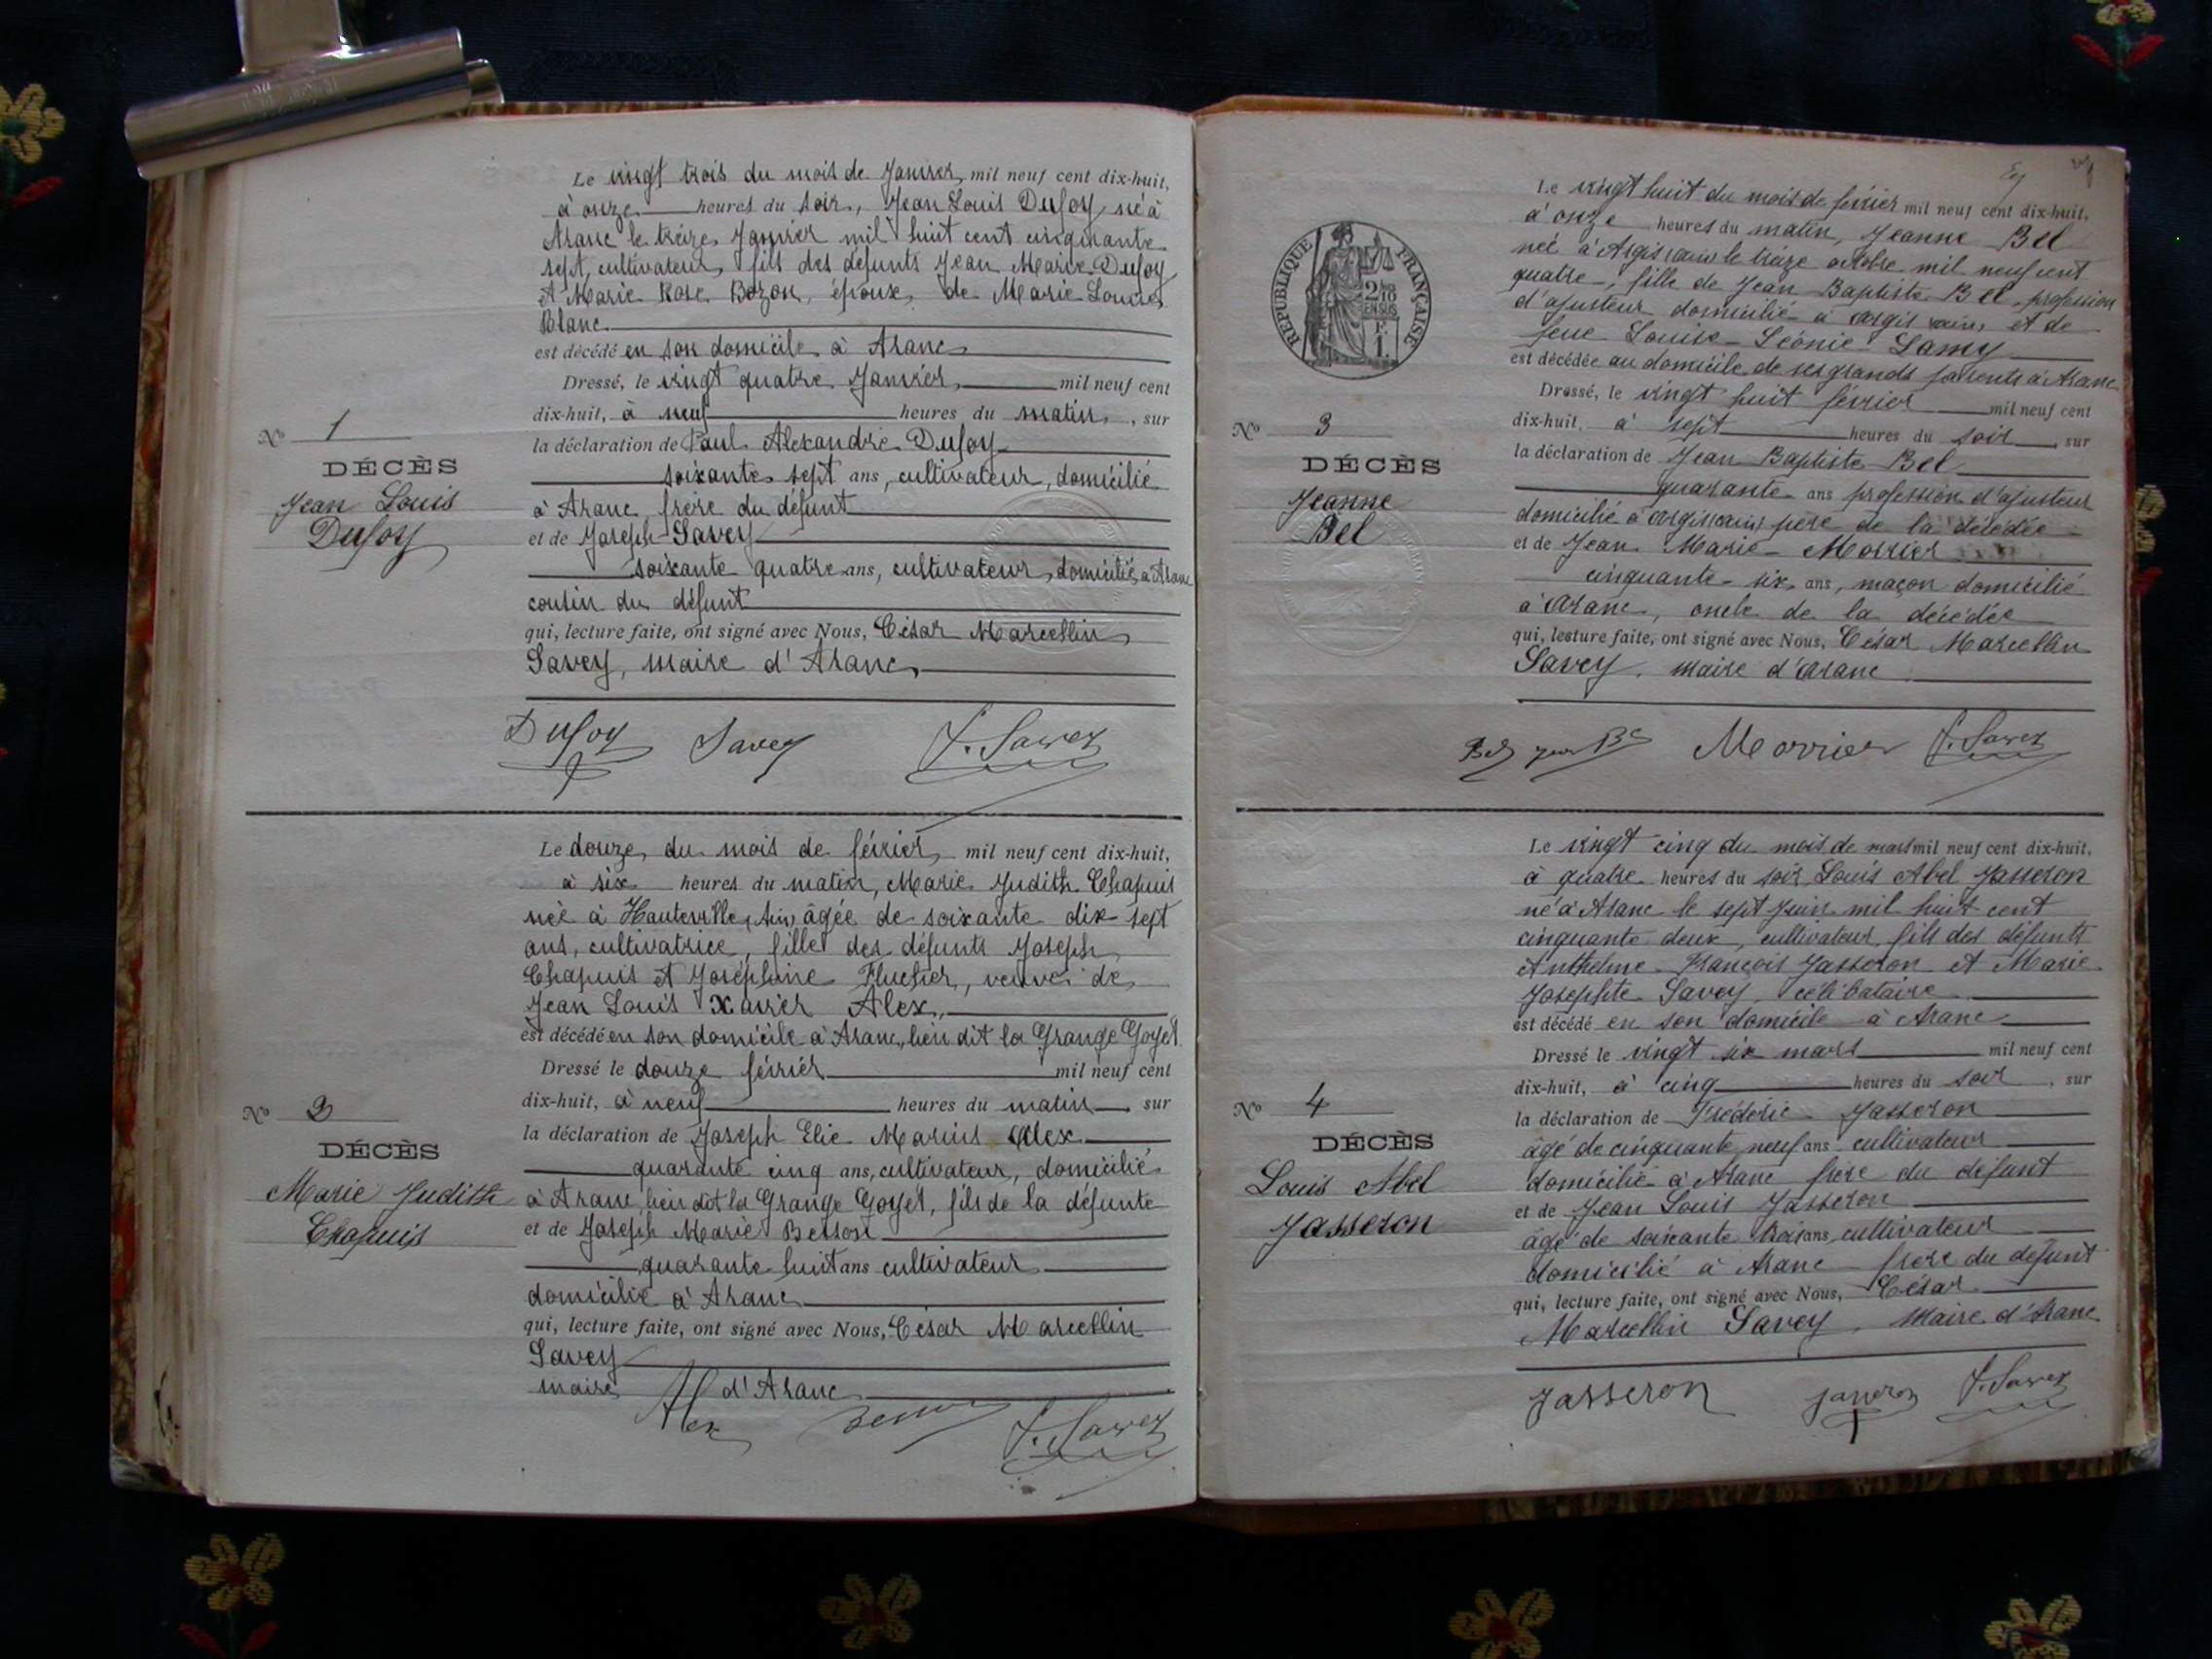 Le vingt trois du mois de Janvier, mil neuf cent dix-huit,
à onze heures du soir, Jean Louis Dufoy, né à
Aranc le treize Janvier mil huit cent cinquante
sept, cultivateur, fils des défunts Jean Marie Dufoy
et Marie Rose Bozon, époux, de Marie Louise
Blanc
est décédé en son domicile à Aranc
Dressé, le vingt quatre Janvier, mil neuf cent
dix-huit, à neuf heures du matin, sur
la déclaration de Paul Alexandre Dufoy
soixante sept ans, cultivateur, domicilié
à Aranc, frère du défunt
et de Joseph Savey
soixante quatre ans, cultivateur, domicilié à Aranc
cousin du défunt
qui, lecture faite, ont signé avec Nous, César Marcellin
Savey, maire d'Aranc,
No 1
DÉCÈS
Jean Louis
Dufoy
Dufoy Savey Savey
Le douze, du mois de février, mil neuf cent dix-huit,
à six heures du matin, Marie Judith Chapuis
née à Hauteville (Ain) âgée de soixante dix sept
ans, cultivatrice, fille des défunts Joseph
Chapuis et Joséphine Fluchier, veuve de
Jean Louis Xavier Alex,
est décédé en son domicile à Aranc, lieu dit la Grange Goyet
Dressé le douze février mil neuf cent
dix-huit, à neuf heures du matin, sur
la déclaration de Joseph Elie Marius Alex
quarante cinq ans, cultivateur, domicilié
à Aranc, lieu dit la Grange Goyet, fils de la défunte
et de Joseph Marie Besson
quarante huit ans cultivateur
domicilié à Aranc
qui, lecture faite, ont signé avec Nous, César Marcellin
Savey
maire d'Aranc
No 2
DÉCÈS
Marie Judith
Chapuis
Alex Savey
RÉPUBLIQUE FRANÇAISE
Le vingt huit du mois de février mil neuf cent dix-huit,
à onze heures du matin, Jeanne Bel
née à Argis (Ain) le treize octobre mil neuf cent
quatre, fille de Jean Baptiste Bel, profession
d'ajusteur domicilié à Argis (Ain), et de
feue Louise Léonie Lamy
est décédée au domicile de ses grands parents à Aranc
Dressé, le vingt huit février mil neuf cent
dix-huit, à sept heures du soir, sur
la déclaration de Jean Baptiste Bel
quarante ans profession d'ajusteur
domicilié à Argis (Ain) père de la décédée
et de Jean Marie Morrier
cinquante six ans, maçon domicilié
à Aranc, oncle de la décédée
qui, lecture faite, ont signé avec Nous, César Marcellin
Savey, maire d'Aranc
No 3
DÉCÈS
Jeanne
Bel
Morrier Savey
Le vingt cinq du mois de mars mil neuf cent dix-huit,
à quatre heures du soir Louis Abel Jasseron
né à Aranc le sept Juin mil huit cent
cinquante deux, cultivateur, fils des défunts
Anthelme François Jasseron et Marie
Josephte Savey, célibataire
est décédé en son domicile à Aranc
Dressé le vingt six mars mil neuf cent
dix-huit, à cinq heures du soir, sur
la déclaration de Frédéric Jasseron
âgé de cinquante neuf ans cultivateur
domicilié à Aranc frère du défunt
et de Jean Louis Jasseron
âgé de soixante trois ans, cultivateur
domicilié à Aranc frère du défunt
qui, lecture faite, ont signé avec Nous, César
Marcellin Savey, Maire d'Aranc
No 4
DÉCÈS
Louis Abel
Jasseron
Jasseron Jasseron Savey